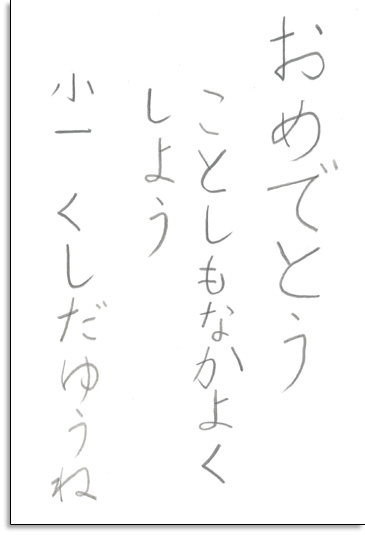 おめでとう
ことしもなかよく
しよう
小一 くしだゆうね